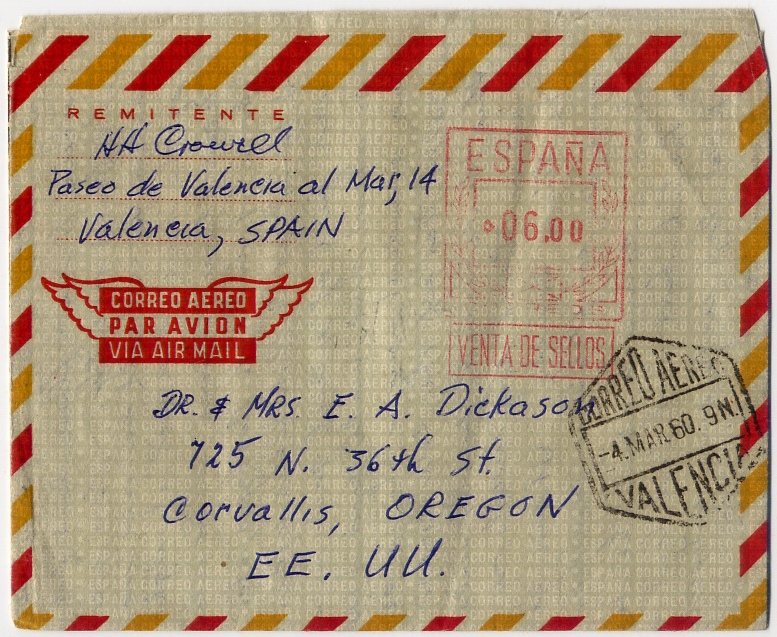 REMITENTE
HA Crowell
Paseo de Valencia al Mar, 14
Valencia, SPAIN
CORREO AEREO
PAR AVION
VIA AIR MAIL
ESPAÑA
06.00
VENTA DE SELLOS
CORREO AEREO
-4.MAR 60.9N.
VALENCIA
DR. & MRS. E. A. Dickason
725 N. 36th St.
Corvallis, OREGON
EE. UU.